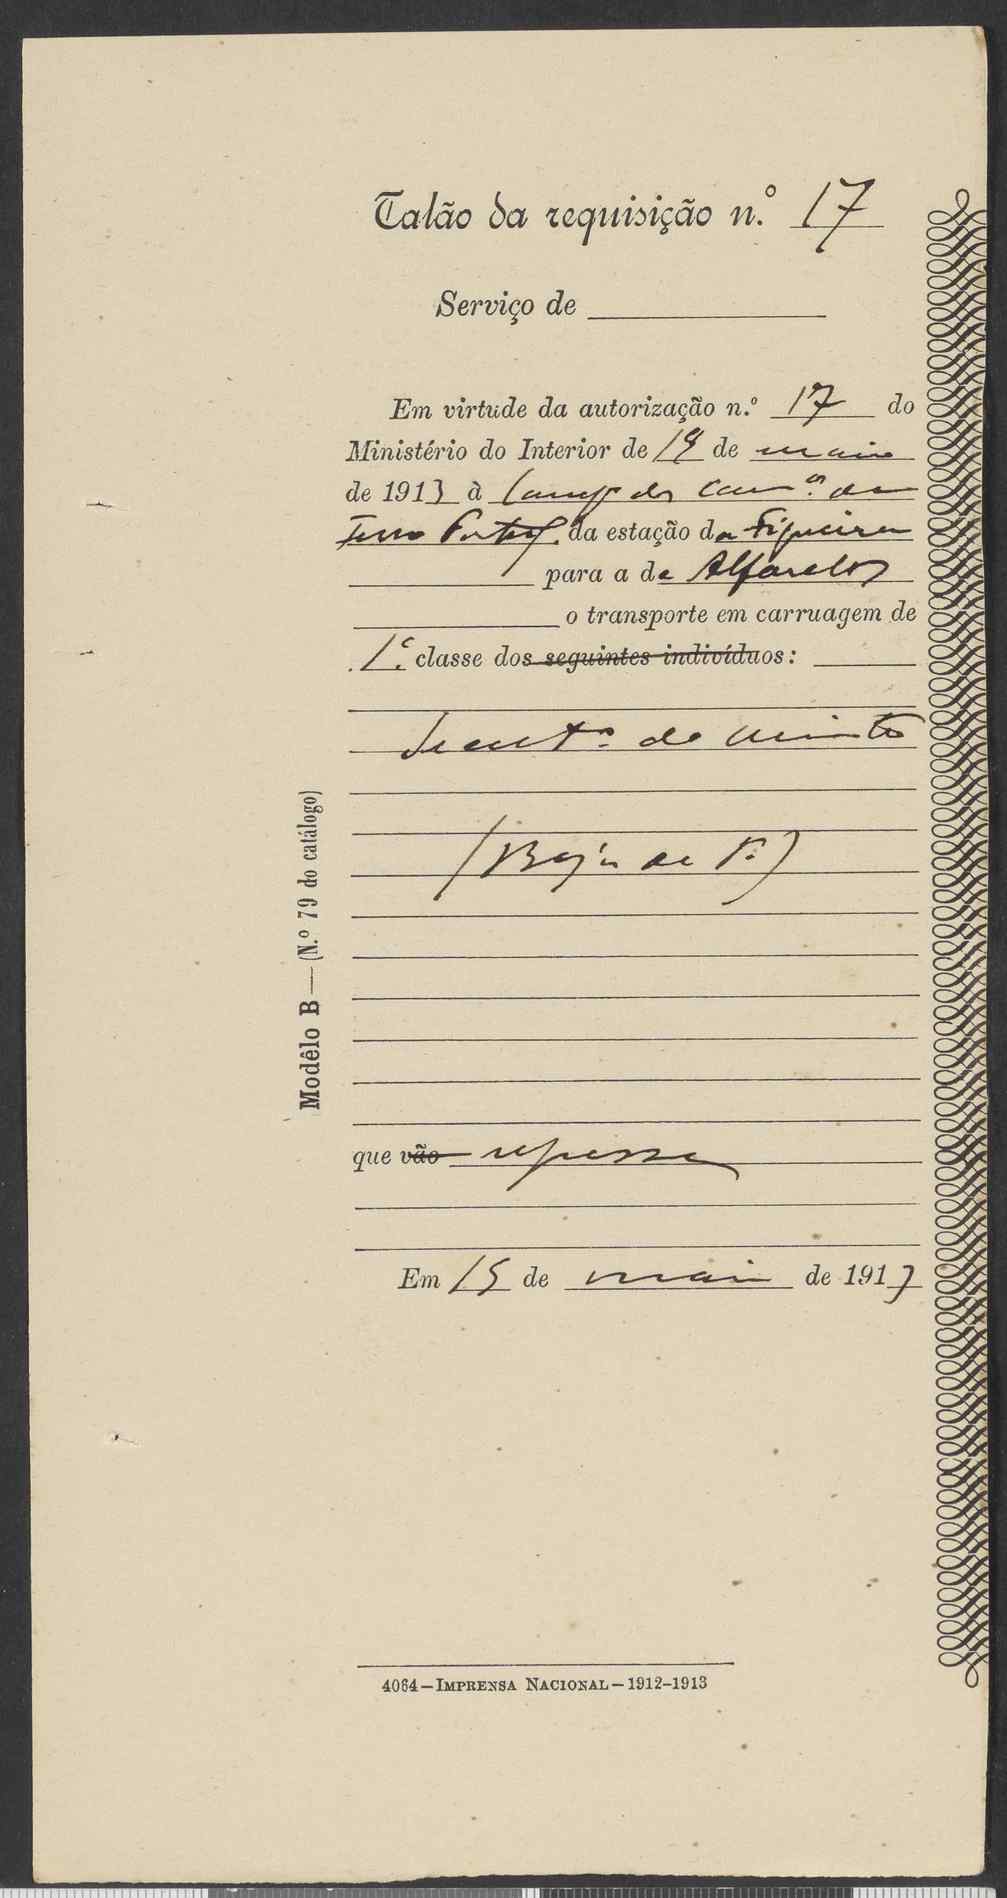 Talão da requisição n.º 17
Serviço de
Em virtude da autorização n.º 17 do
Ministério do Interior de de maio
de 1913 à Comp. dos Cam.os de
Ferro Portug. da estação da Figueira
para a de Alfarelos
o transporte em carruagem de
1.ª classe dos seguintes indivíduos:
Secret.º do Ministro
que vão regressa
Em 15 de maio de 1913
Modêlo B — (N.º 79 do catálogo)
4064 — IMPRENSA NACIONAL — 1912-1913